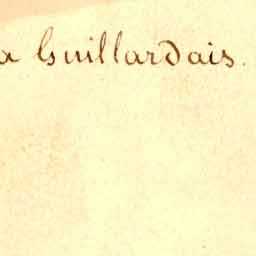 a Guillardais.